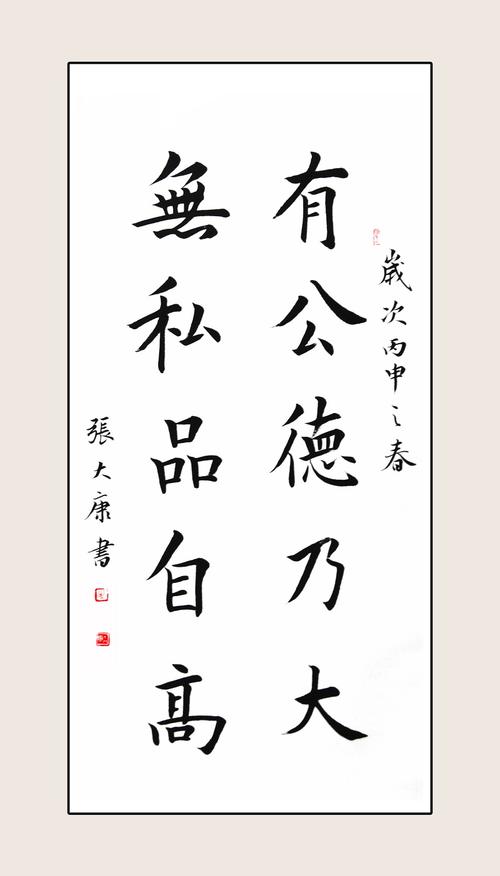 歲次丙申之春
有公德乃大
無私品自高
張大康書